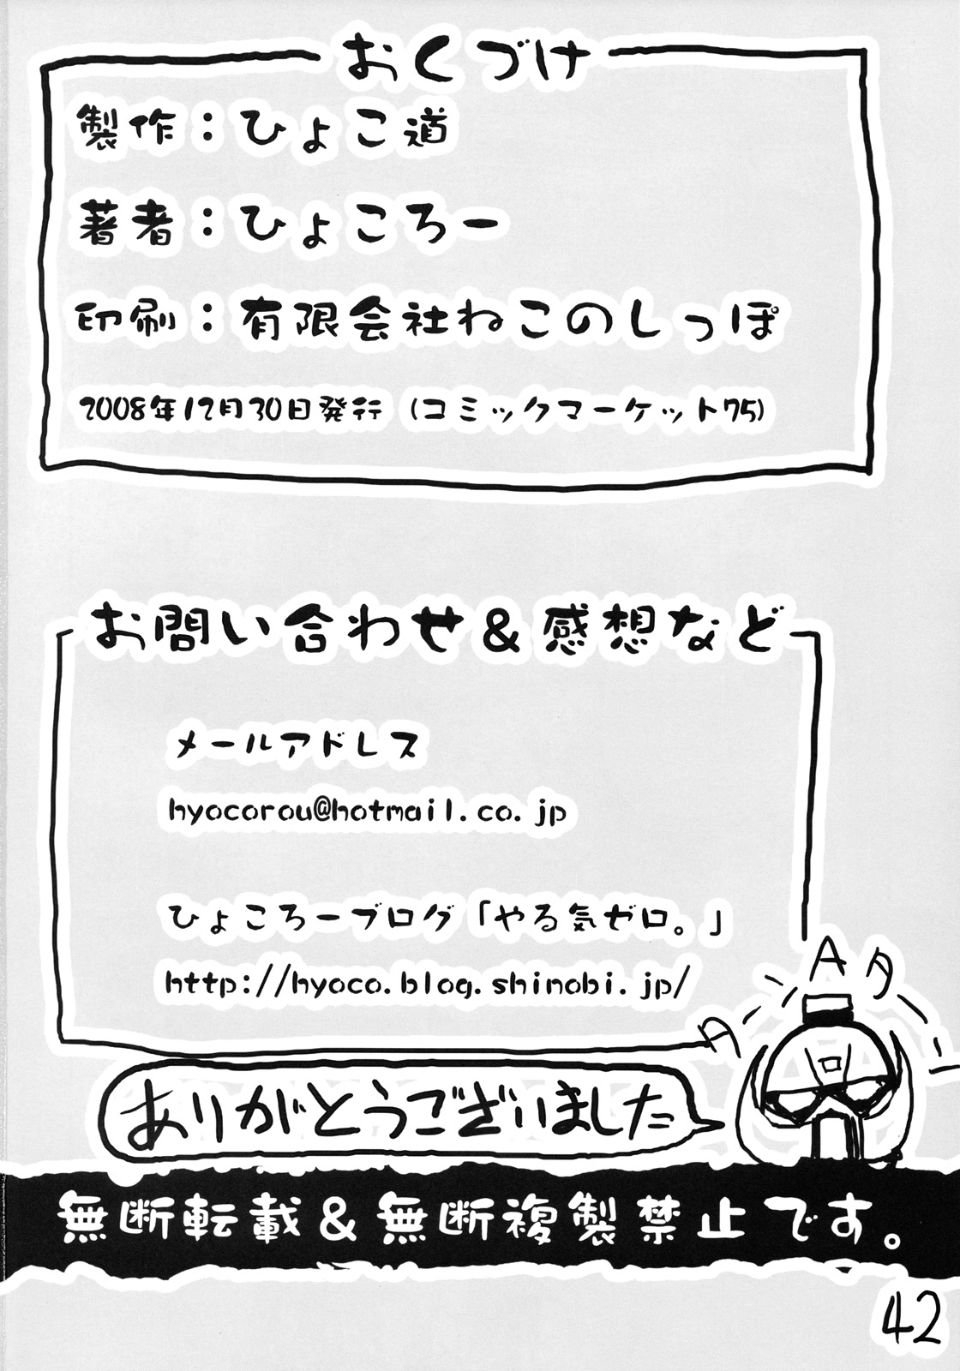 おくづけ
製作：ひょこ道
著者：ひょころー
印刷：有限会社ねこのしっぽ
2008年12月30日発行 (コミックマーケット75)
お問い合わせ＆感想など
メールアドレス
hyocorou@hotmail.co.jp
ひょころーブログ「やる気ゼロ。」
http://hyoco.blog.shinobi.jp/
ありがとうございました
無断転載＆無断複製禁止です。
42